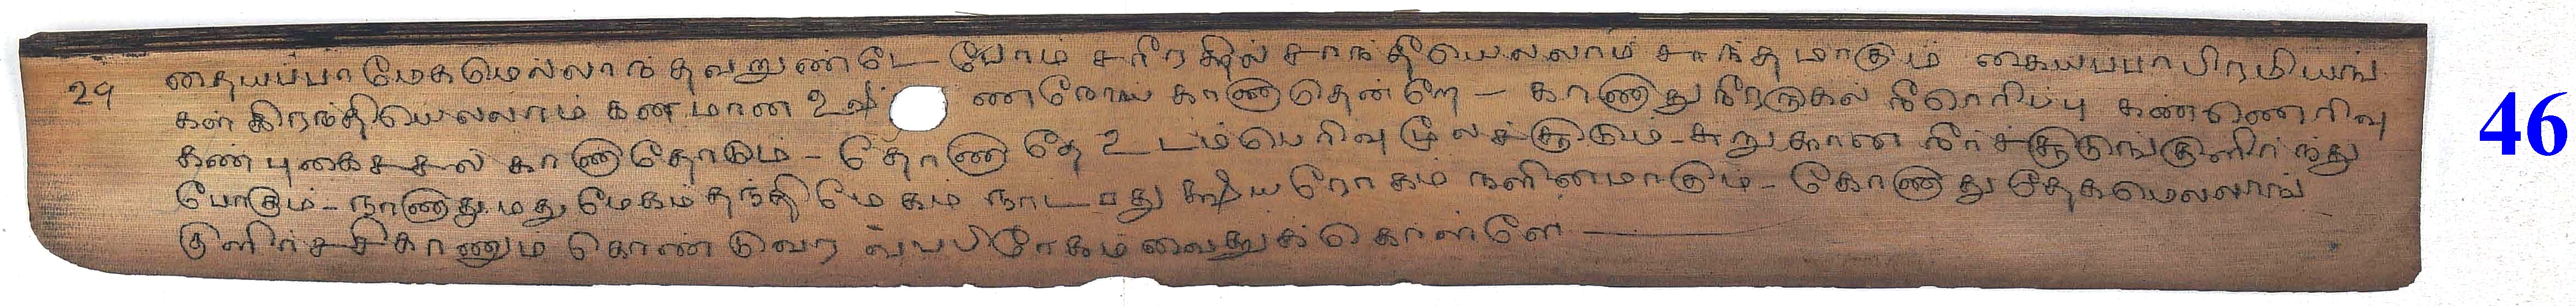 29 தையப்பா மேகமெல்லாந் தவறுண்டே போம் சரீரக்ஷில் சாந்தியெலலாம் சாந்தமாகும் கையபபா பிரமியங்
கள் கிரந்தியெலலாம் கணமான உஷ் ணநோய் காணுதென்றே - காணுது நீரருகல் நீரெரிப்பு கண்ணெரிவு
கண் புகைசசல் காணுதோடும் - தோணுதே உடம்பெரிவு மூலச்சூடும் - சுறுகான நீர்ச்சூடுங்குளிர்ந்து
போகும் - நாணுது மது மேகம் தந்தி மேகம் நாடாது க்ஷயரோகம் நளினமாகும் - கோணுது தேகமெலலாங்
குளிர்ச்சி காணும கொண்டுவர
46